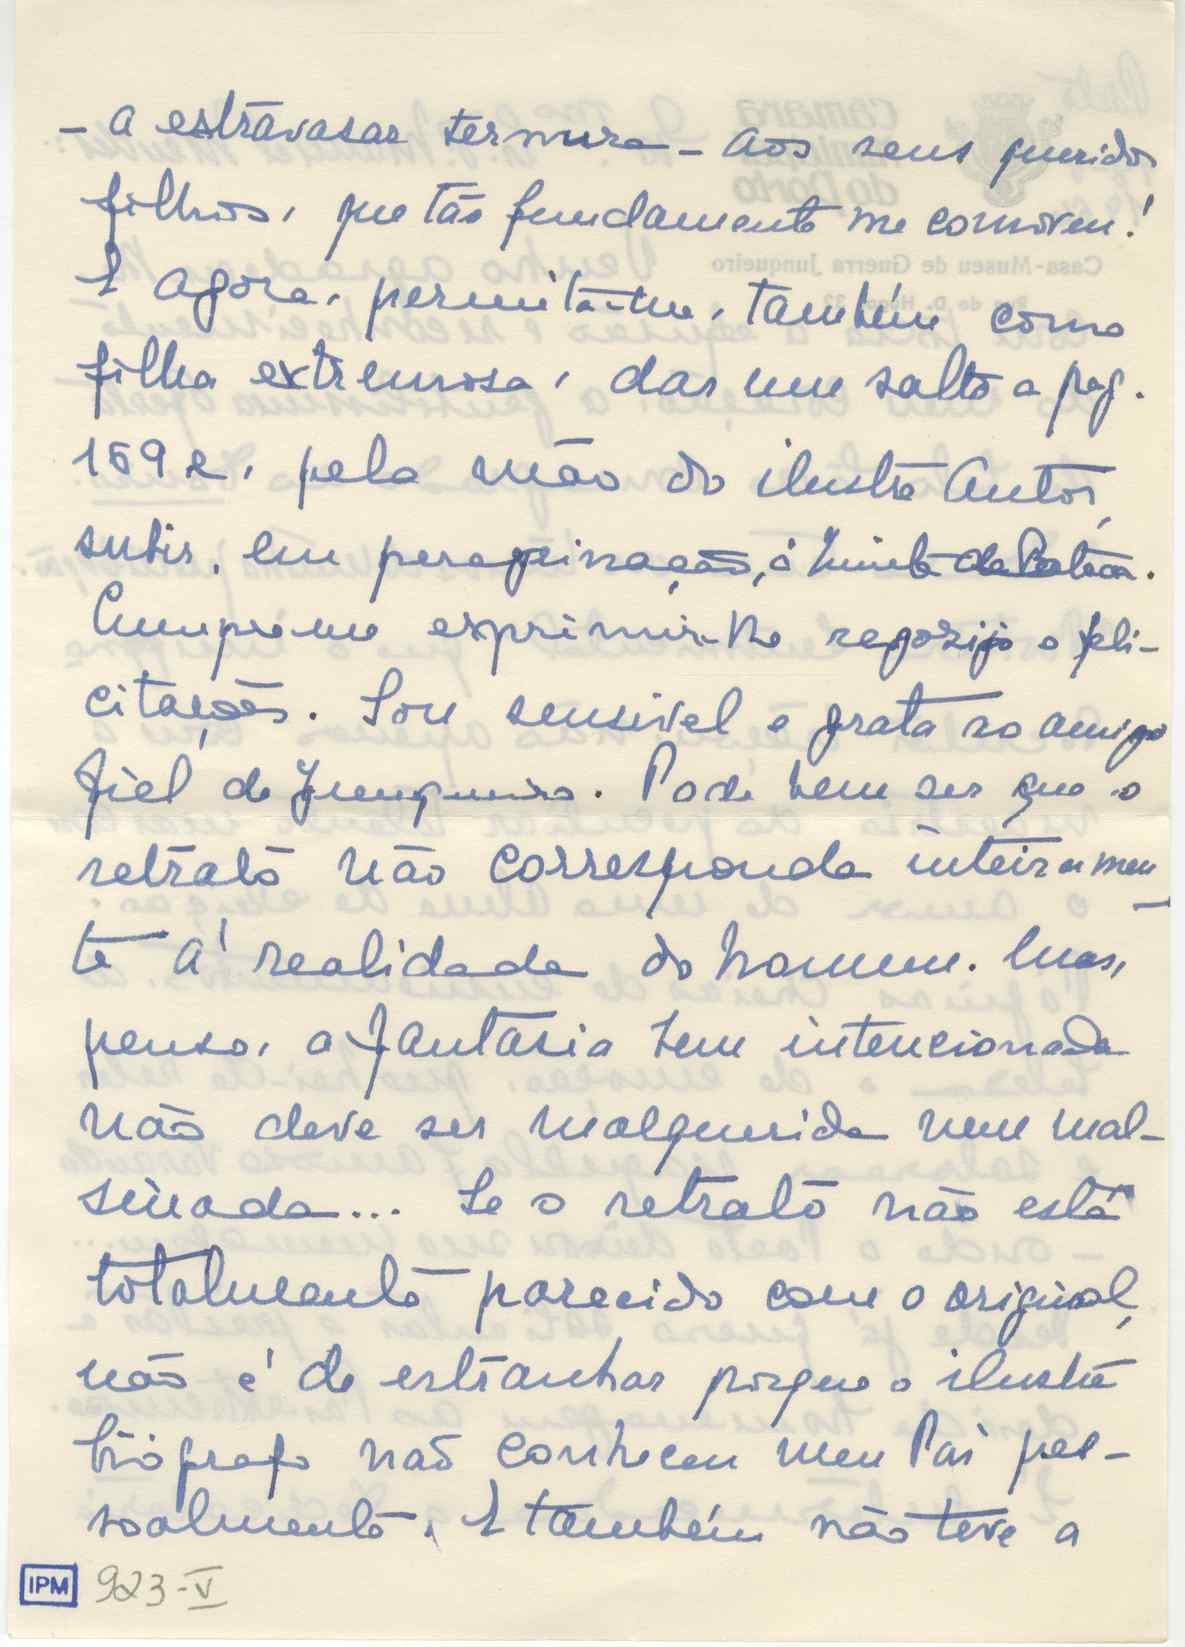 - a estravasar ternura - aos seus queridos
filhos, que tão fundamente me comoveu!
E agora, permita-me, também como
filha extremosa, dar um salto a pag.
159 e, pela mão do ilustre Autor,
subir, em peregrinação, á
Cumpre-me exprimir-lhe regozijo e feli-
citações. Sou sensivel e grata ao amigo
fiel de Junqueiro. Pode bem ser que o
retrato não corresponda inteiramen-
te á realidade do homem. Mas,
penso, a fantasia bem intencionada
não deve ser malquerida nem mal-
sinada... Se o retrato não está
totalmente parecido com o original,
não é de estranhar porque o ilustre
biógrafo não conheceu meu Pai pes-
soalmente. E também não teve a
IPM 923-V
Camara
Municipal
do Porto
Casa-Museu de Guerra Junqueiro